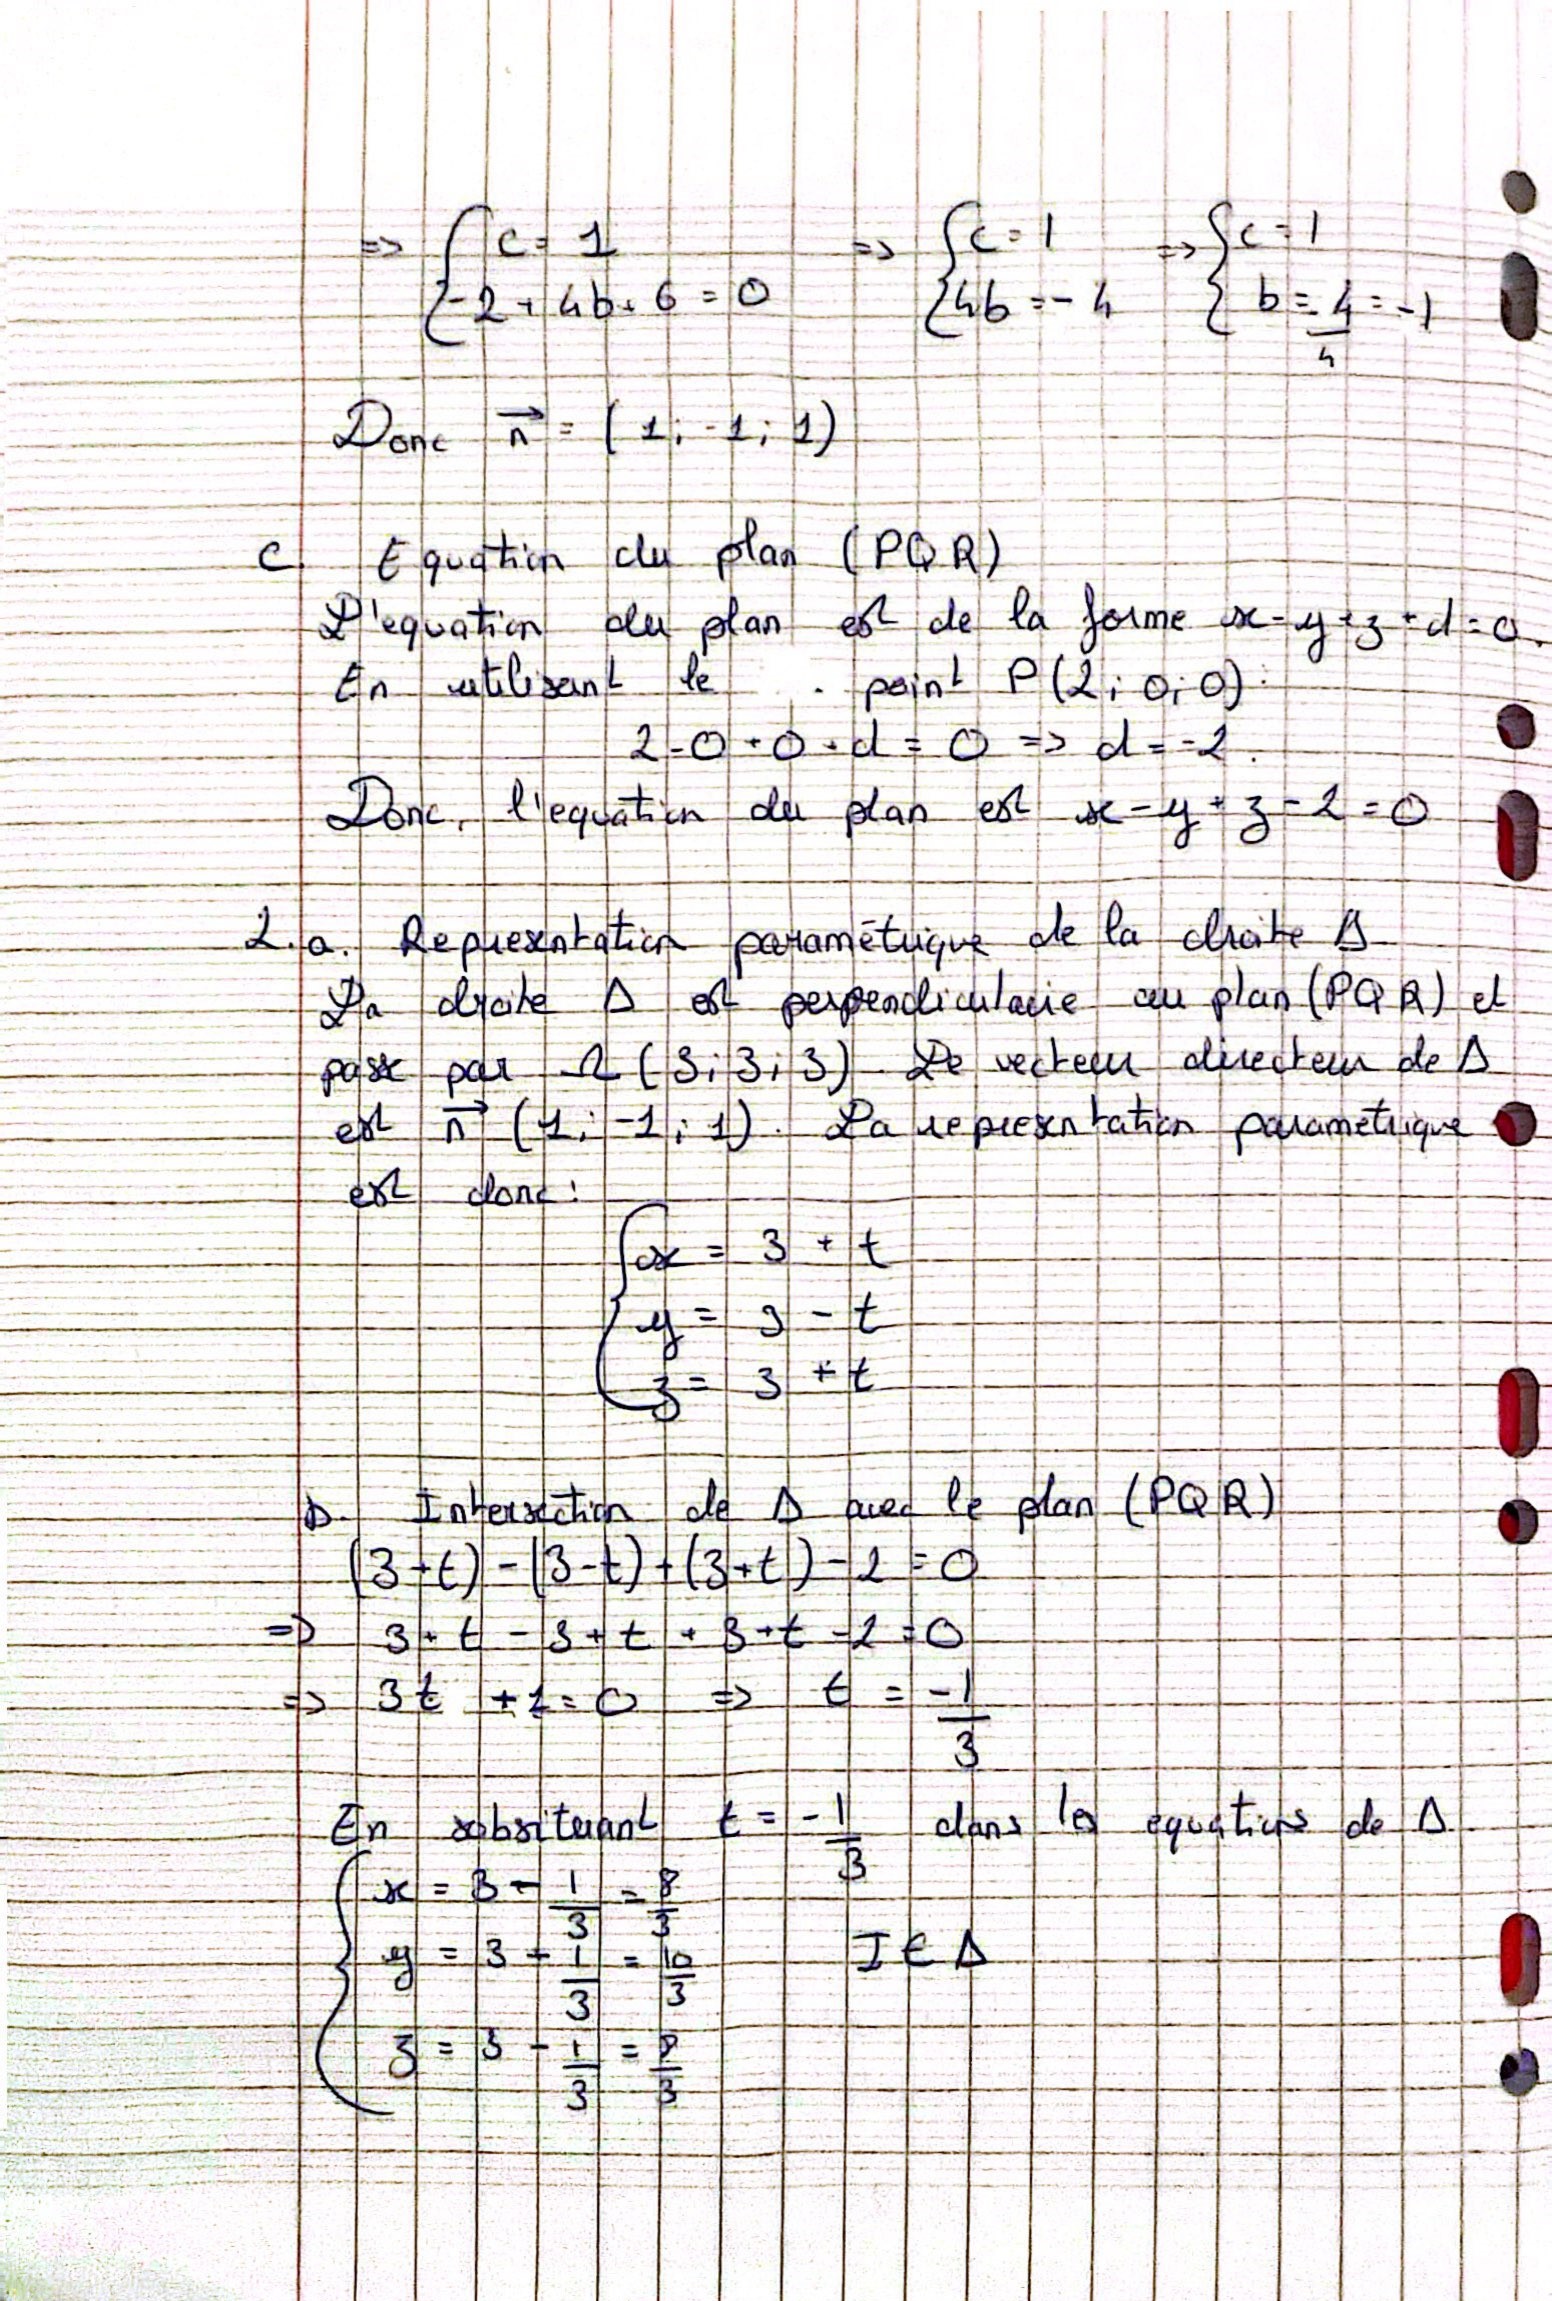 => { c = 1 => { c = 1 => { c = 1
{ -2 + 4b + 6 = 0 { 4b = - 4 { b = -4/4 = -1
Donc n⃗ = ( 1 ; -1 ; 1 )
c. Equation du plan (PQR)
L'equation du plan est de la forme x - y + z + d = 0.
En utilisant le point P(2 ; 0 ; 0) :
2 - 0 + 0 + d = 0 => d = -2.
Donc, l'equation du plan est x - y + z - 2 = 0
2. a. Representation paramétrique de la droite Δ
La droite Δ est perpendiculaire au plan (PQR) et
passe par Ω (3 ; 3 ; 3) Le vecteur directeur de Δ
est n⃗ (1 ; -1 ; 1). La representation paramétrique
est donc :
{ x = 3 + t
y = 3 - t
z = 3 + t
b. Intersection de Δ avec le plan (PQR)
(3+t) - (3-t) + (3+t) - 2 = 0
=> 3 + t - 3 + t + 3 + t - 2 = 0
=> 3t + 1 = 0 => t = -1/3
En subsituant t = -1/3 dans les equations de Δ
{ x = 3 - 1/3 = 8/3
y = 3 + 1/3 = 10/3 I ∈ Δ
z = 3 - 1/3 = 8/3